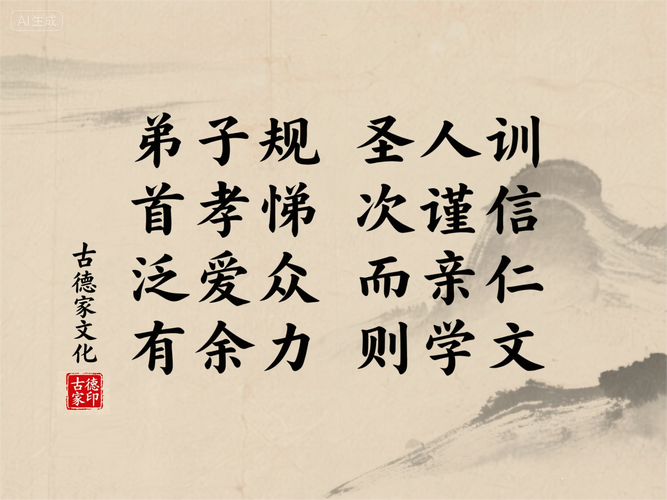 AI生成
弟子规 圣人训
首孝悌 次谨信
泛爱众 而亲仁
有余力 则学文
古德家文化
古德家印